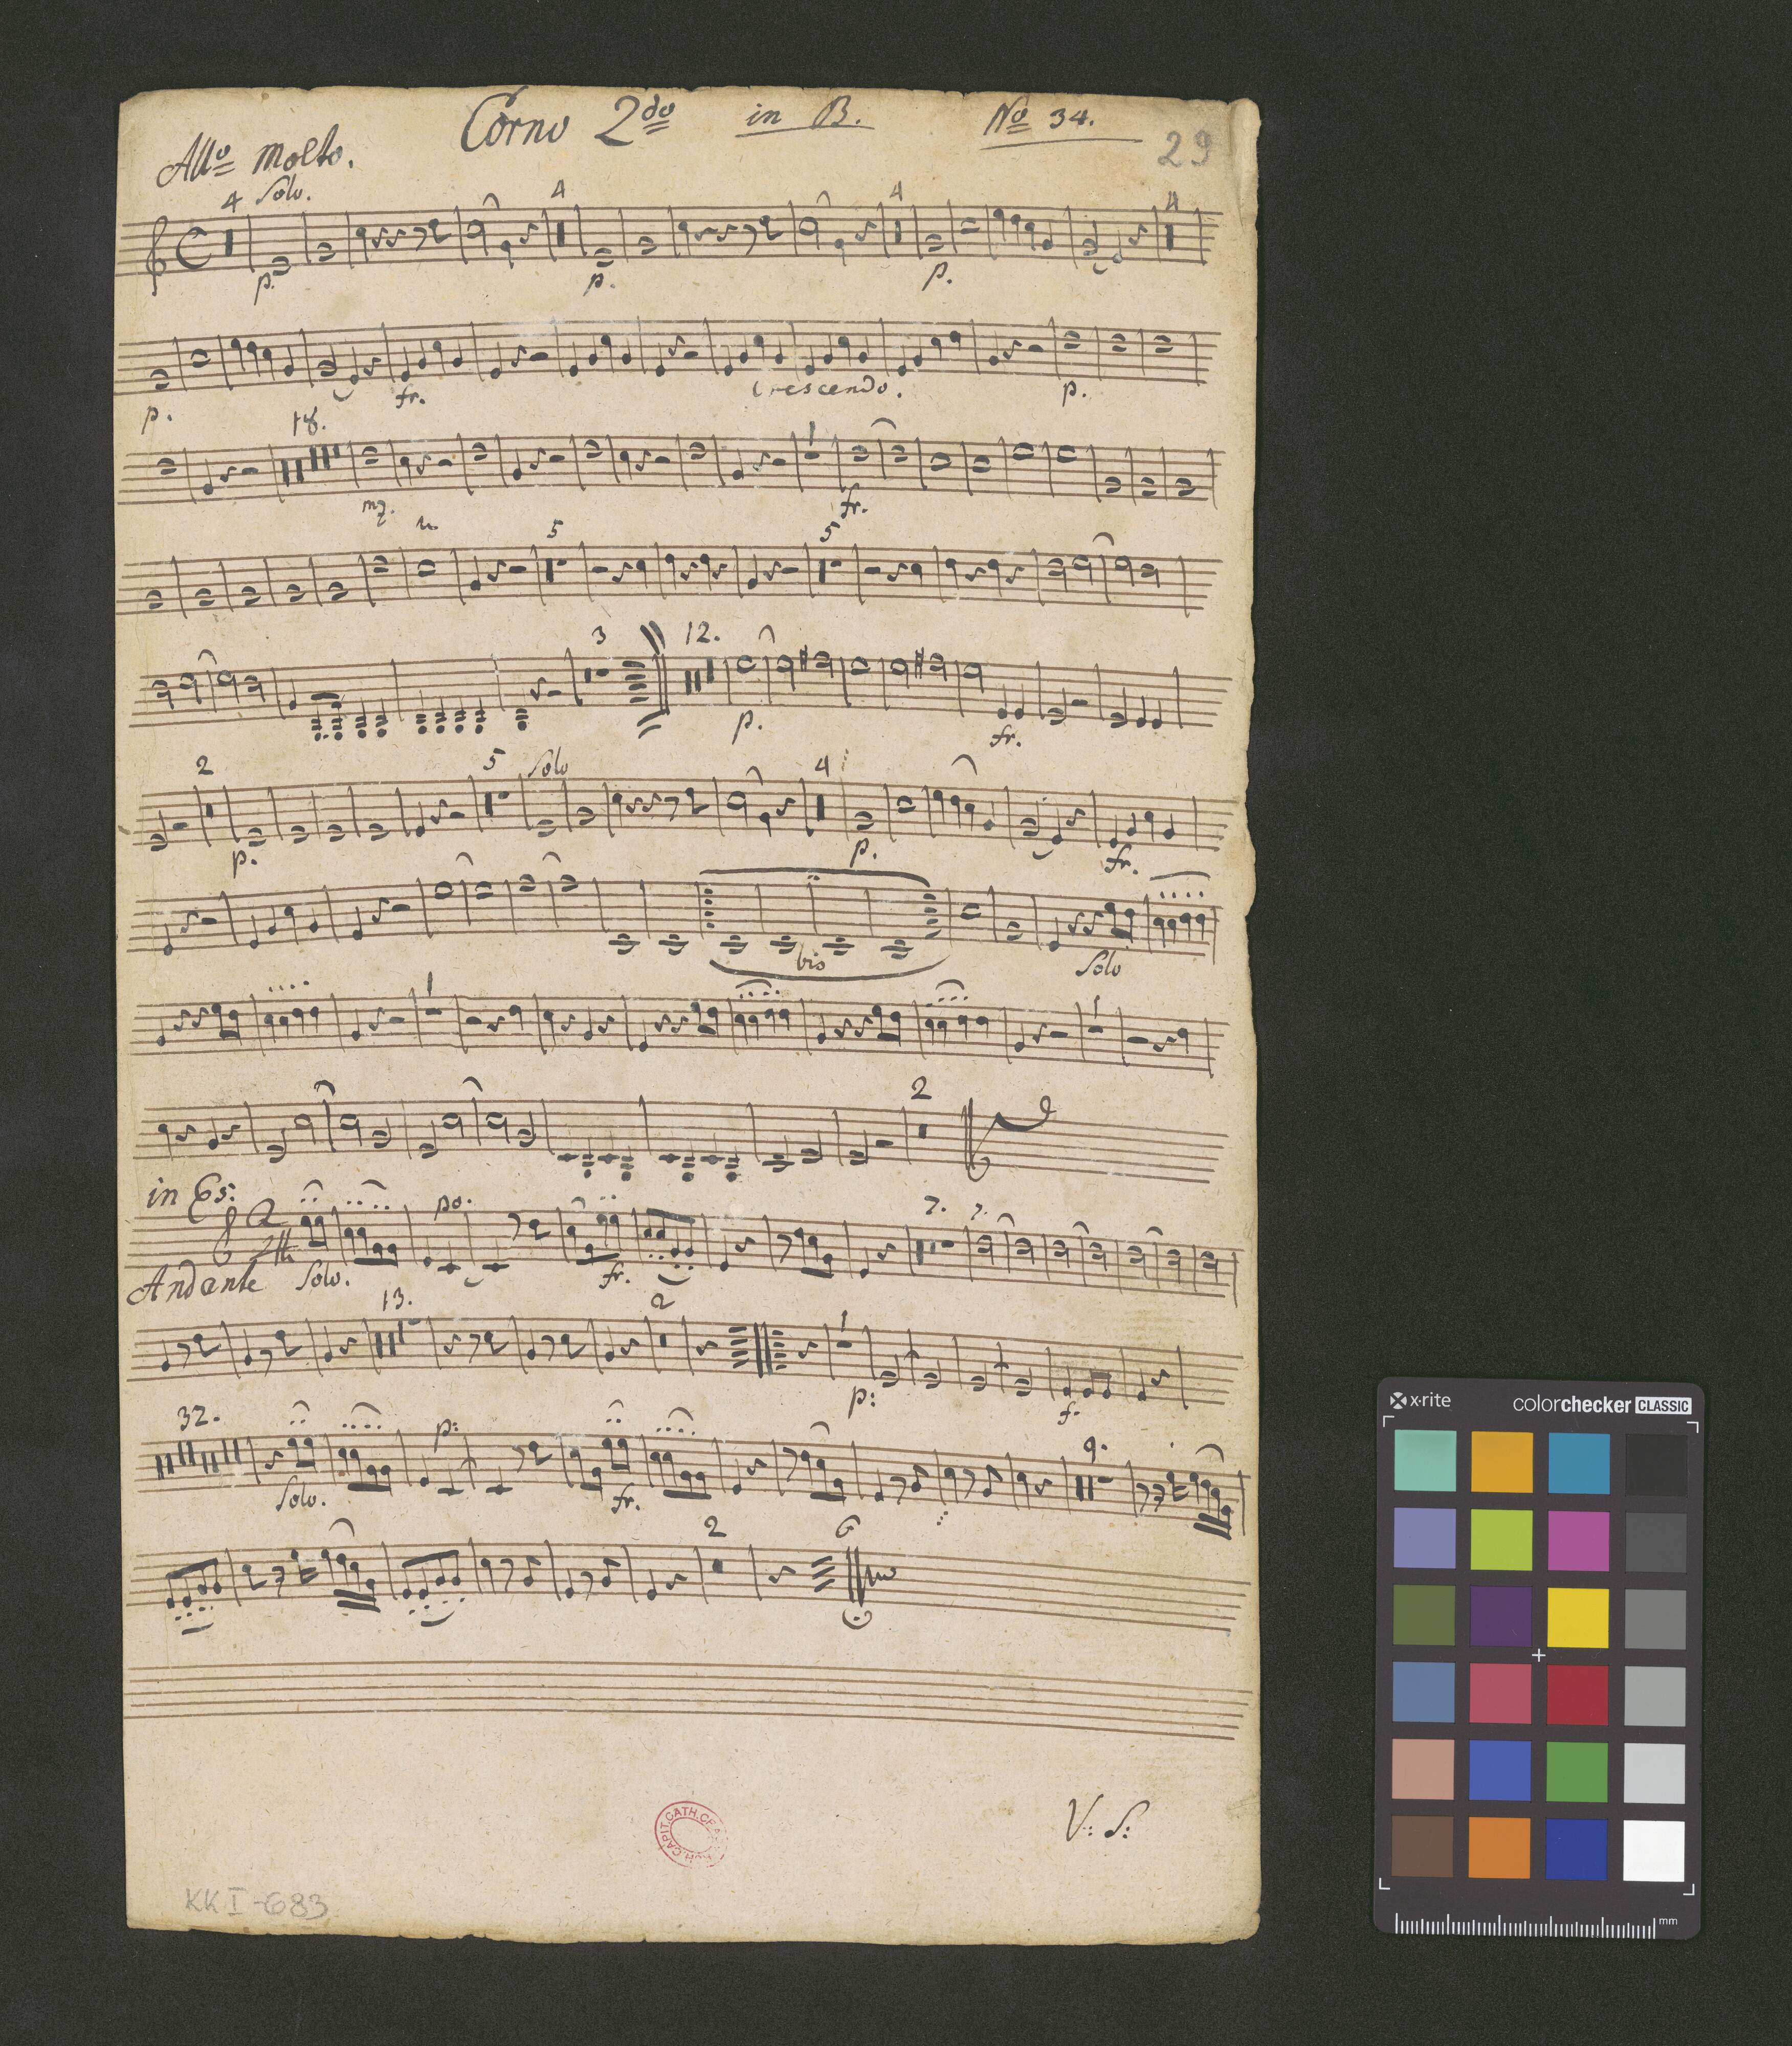 Corno 2do in B. No 34.
29
Allo Molto.
4 Solo. 4 4 4
p. p. p.
p. fr. Crescendo. p.
18.
mz. fr.
5 5
3 12.
p. fr.
2 5 Solo 4
p. p. fr.
bis Solo
2
in Es:
po. 7. 7.
Andante Solo. fr.
13. 2
p: f.
32. p: 9.
Solo. fr.
2
V: S:
CAPIT. CATH.
KK I-683
x-rite colorchecker CLASSIC
mm